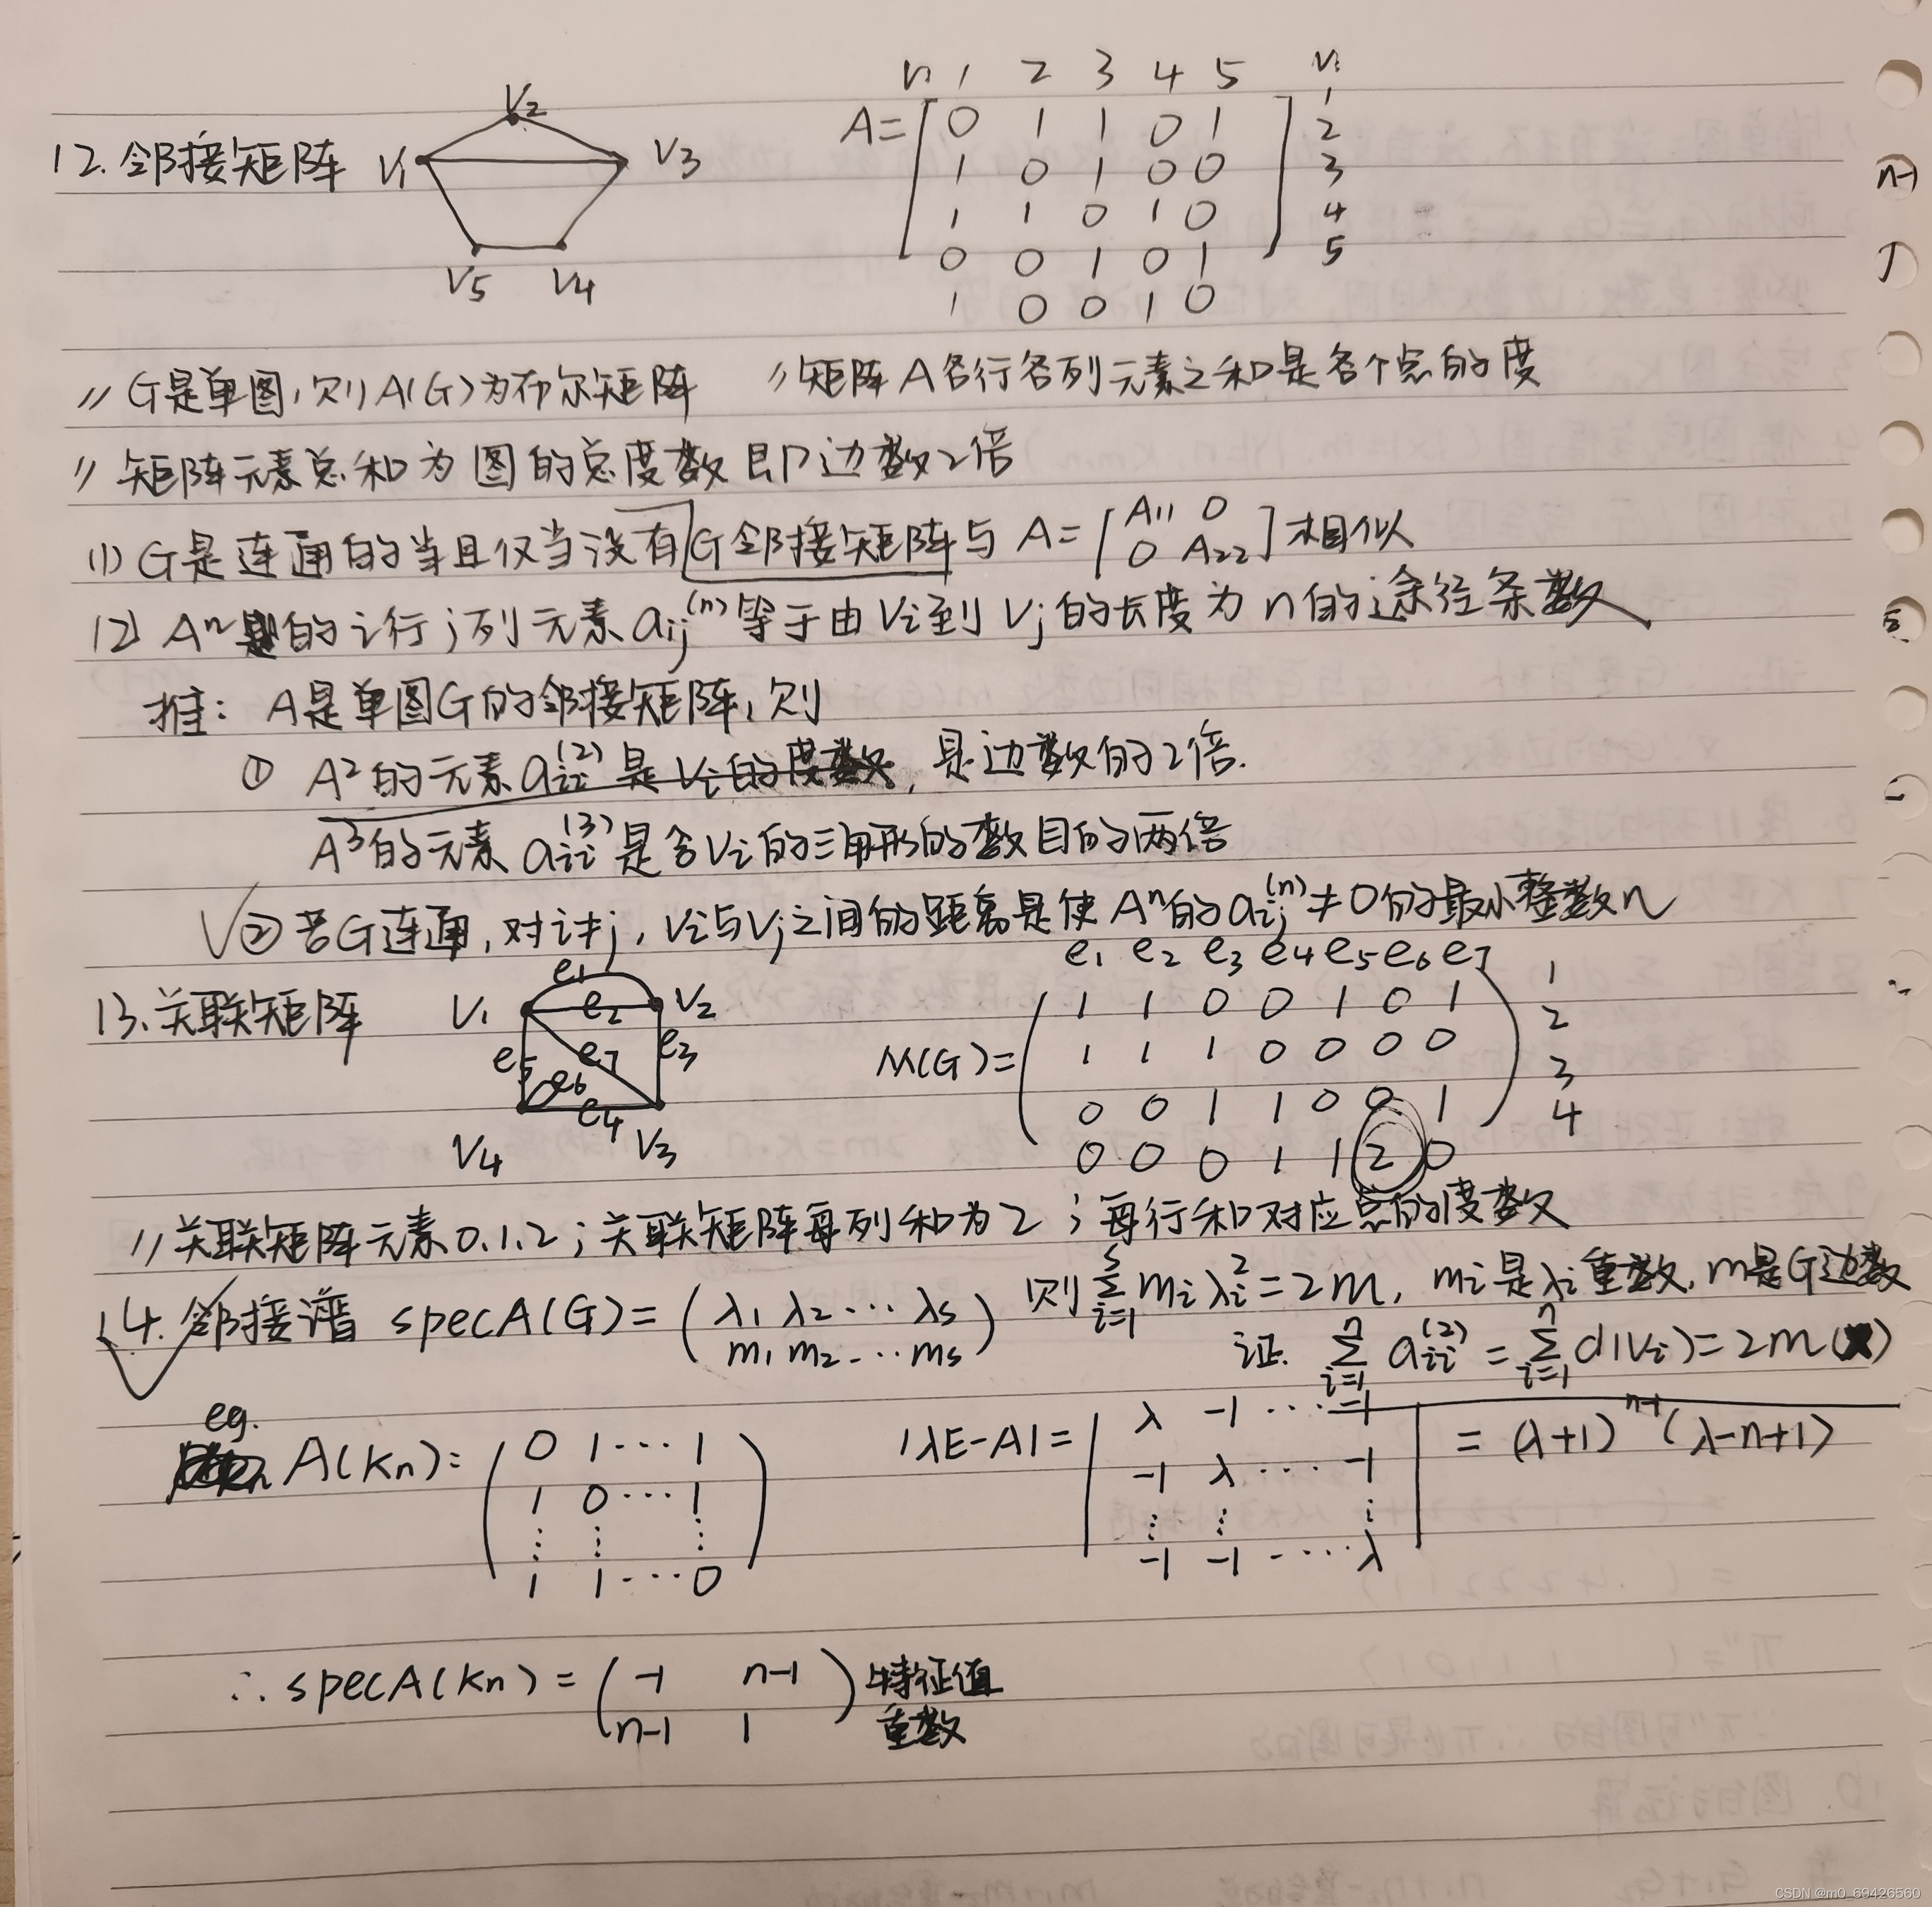 12. 邻接矩阵
V1 V2 V3 V4 V5
Vi 1 2 3 4 5 Vi
A= [ 0 1 1 0 1 1
1 0 1 0 0 2
1 1 0 1 0 3
0 0 1 0 1 4
1 0 0 1 0 ] 5
// G是单图,则A(G)为布尔矩阵 // 矩阵A各行各列元素之和是各个点的度
// 矩阵元素总和为图的总度数即边数2倍
(1) G是连通的当且仅当没有G邻接矩阵与 A=[A11 0
0 A22] 相似
(2) Aⁿ的i行j列元素aij⁽ⁿ⁾等于由Vi到Vj的长度为n的途径条数
推: A是单图G的邻接矩阵,则
① A²的元素aii⁽²⁾是Vi的度数, 是边数的2倍.
A³的元素aii⁽³⁾是含Vi的三角形的数目的两倍
√② 若G连通,对i≠j, Vi与Vj之间的距离是使Aⁿ的aij⁽ⁿ⁾≠0的最小整数n
13.关联矩阵
V1 V2 V3 V4
e1 e2 e3 e4 e5 e6 e7
e1 e2 e3 e4 e5 e6 e7
M(G)= ( 1 1 0 0 1 0 1 1
1 1 1 0 0 0 0 2
0 0 1 1 0 0 1 3
0 0 0 1 1 2 0 ) 4
// 关联矩阵元素0.1.2; 关联矩阵每列和为2; 每行和对应点的度数
14. 邻接谱 specA(G)= (λ1 λ2 ··· λs
m1 m2 ··· ms) 则 Σ(i=1→s) miλi²=2m, mi是λi重数, m是G边数
证. Σ(i=1→n) aii⁽²⁾ = Σ(i=1→n) d(Vi)=2m
eg.
A(Kn): ( 0 1 ··· 1
1 0 ··· 1
⋮ ⋮ ⋮
1 1 ··· 0 )
|λE-A|= | λ -1 ··· -1
-1 λ ··· -1
⋮ ⋮ ⋮
-1 -1 ··· λ | = (λ+1)ⁿ⁻¹(λ-n+1)
∴ specA(Kn)= ( -1 n-1 特征值
n-1 1 ) 重数
n-1
CSDN @m0_69426560